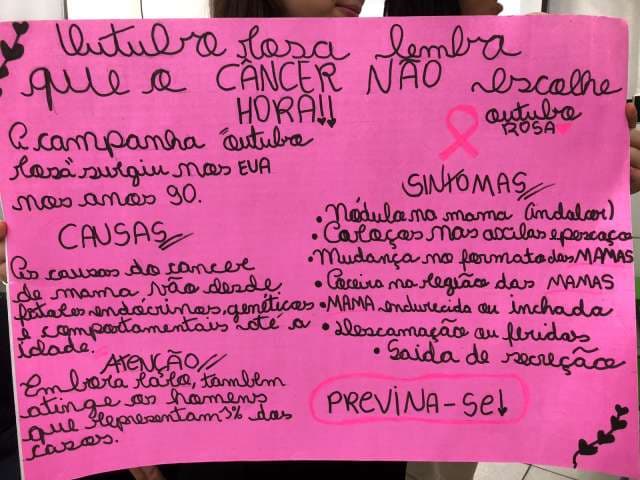 Outubro rosa lembra
que o CÂNCER NÃO escolhe
HORA!!
outubro
ROSA
A campanha "outubro
rosa" surgiu nos EUA
nos anos 90.
CAUSAS
As causas do cancer
de mama vão desde,
fatores endócrinos, genéticos
e comportamentais até a
idade.
ATENÇÃO
Embora raro, também
atinge os homens
que representam 1% dos
casos.
SINTOMAS
• Nódulo na mama (indolor)
• Caroços nas axilas e pescoço
• Mudança no formato das MAMAS
• Coceira na região das MAMAS
• MAMA endurecida ou inchada
• Descamação ou feridas
• Saída de secreção
PREVINA-SE!